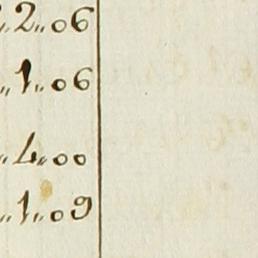 2„06
„1„06
„4„00
„1„09